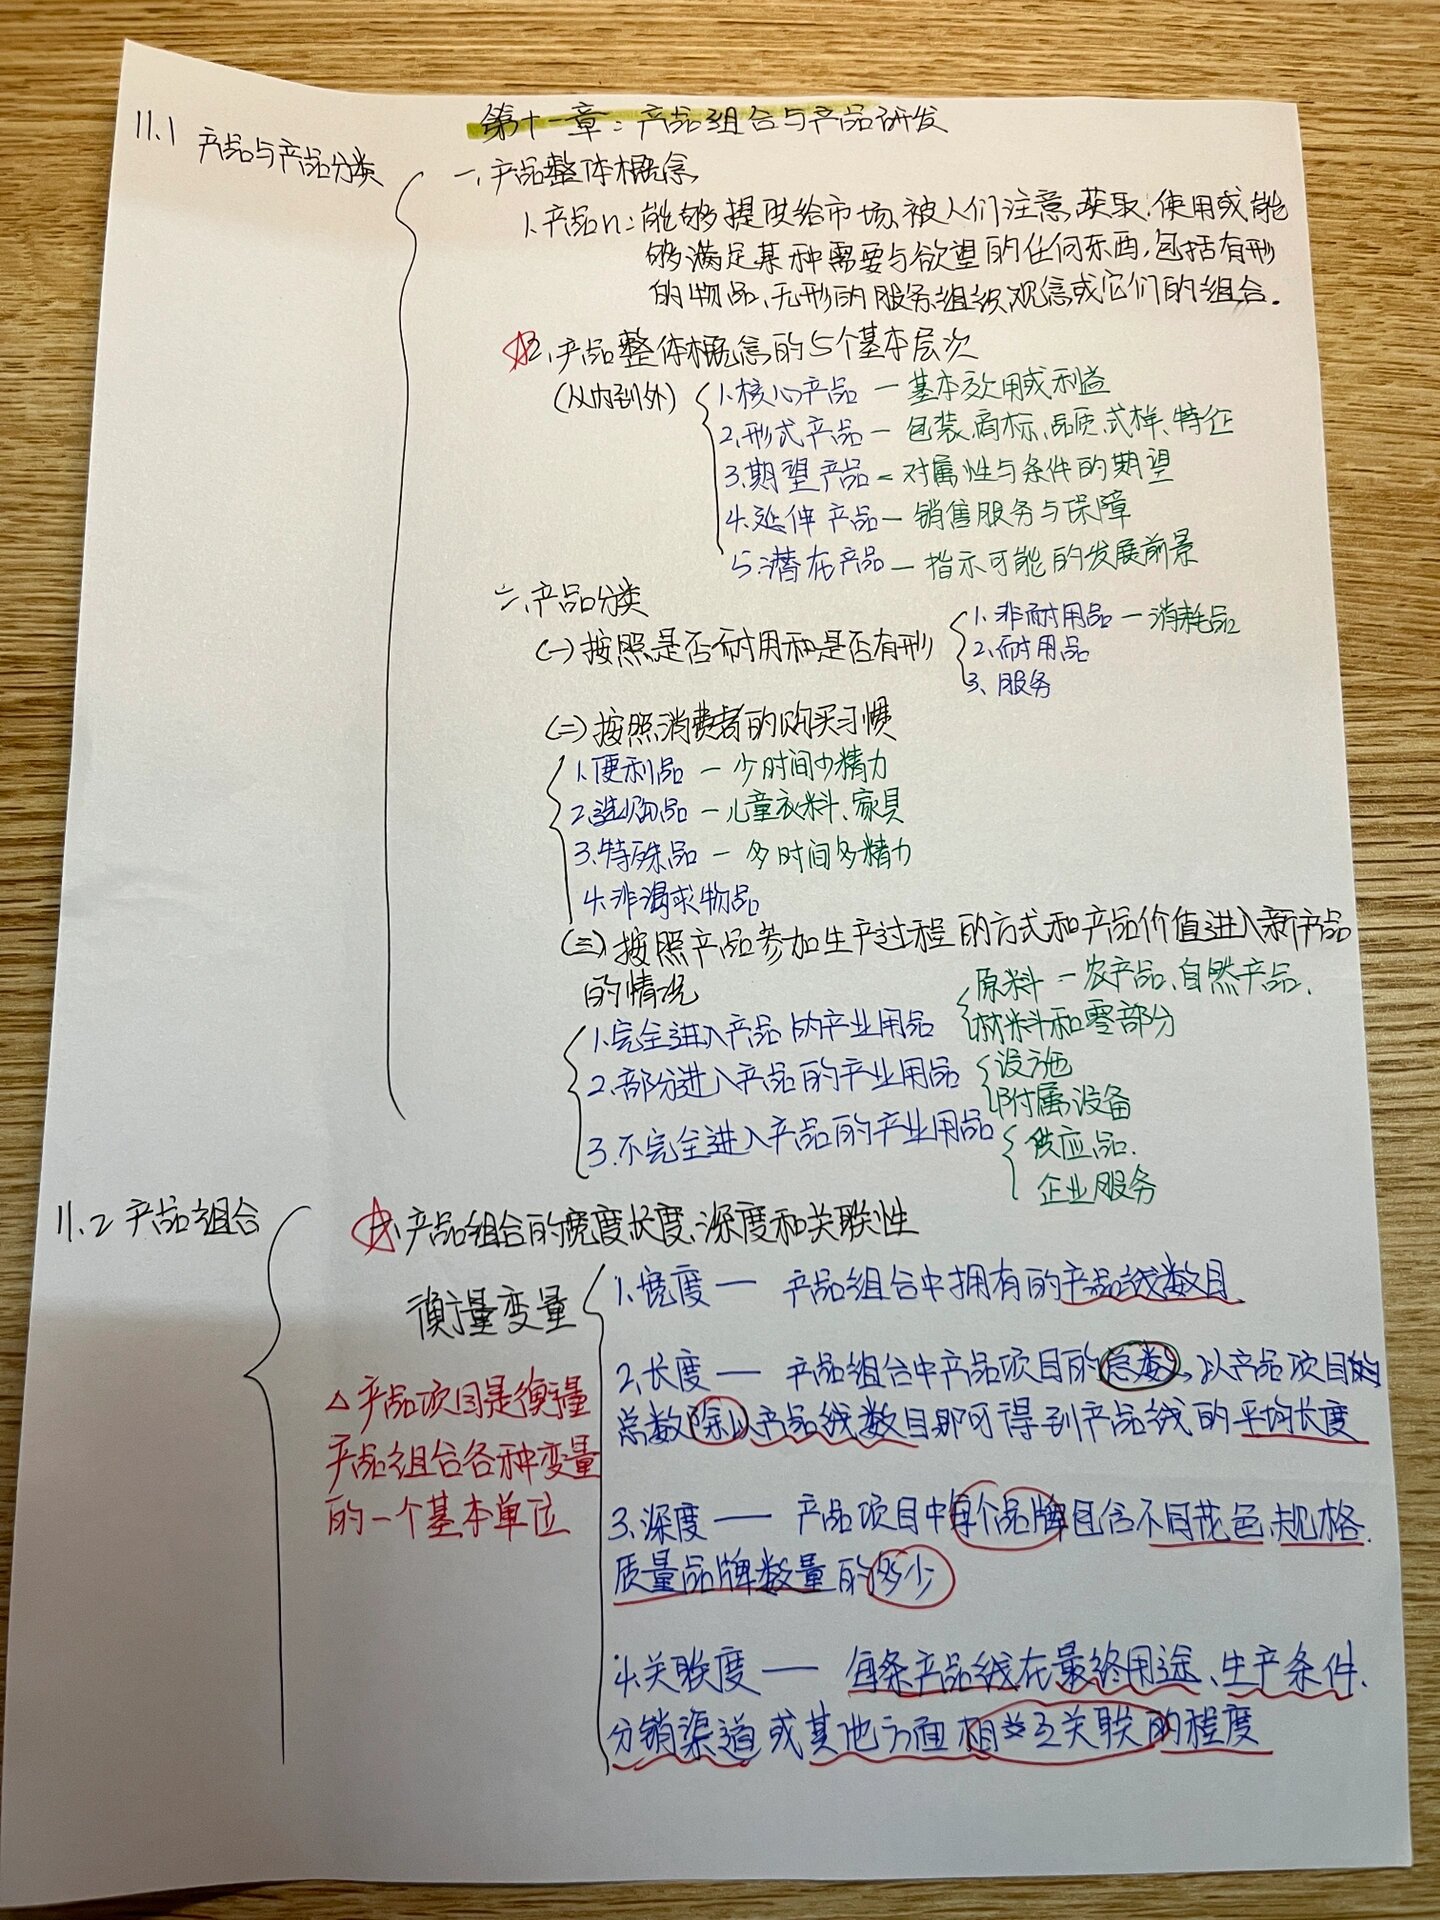 第十一章：产品组合与产品研发
11.1 产品与产品分类
一、产品整体概念
1.产品n：能够提供给市场、被人们注意、获取、使用或能
够满足某种需要与欲望的任何东西，包括有形
的物品、无形的服务、组织、观念或它们的组合。
☆2、产品整体概念的5个基本层次
（从内到外）
1.核心产品 — 基本效用或利益
2.形式产品 — 包装、商标、品质、式样、特征
3.期望产品 — 对属性与条件的期望
4.延伸产品 — 销售服务与保障
5.潜在产品 — 指示可能的发展前景
二、产品分类
(一)按照是否耐用和是否有形
1.非耐用品 — 消耗品
2.耐用品
3、服务
(二)按照消费者的购买习惯
1.便利品 — 少时间少精力
2.选购品 — 儿童衣料、家具
3.特殊品 — 多时间多精力
4.非渴求物品
(三)按照产品参加生产过程的方式和产品价值进入新产品
的情况
1.完全进入产品的产业用品
原料 — 农产品、自然产品、
材料和零部分
2.部分进入产品的产业用品
设施
附属设备
3.不完全进入产品的产业用品
供应品.
企业服务
11.2 产品组合
☆一、产品组合的宽度、长度、深度和关联性
衡量变量
1.宽度 — 产品组合中拥有的产品线数目
2.长度 — 产品组合中产品项目的总数、以产品项目的
总数除以产品线数目即可得到产品线的平均长度
3.深度 — 产品项目中每个品牌包含不同花色、规格、
质量品牌数量的多少
4.关联度 — 每条产品线在最终用途、生产条件、
分销渠道或其他方面相互关联的程度
△产品项目是衡量
产品组合各种变量
的一个基本单位